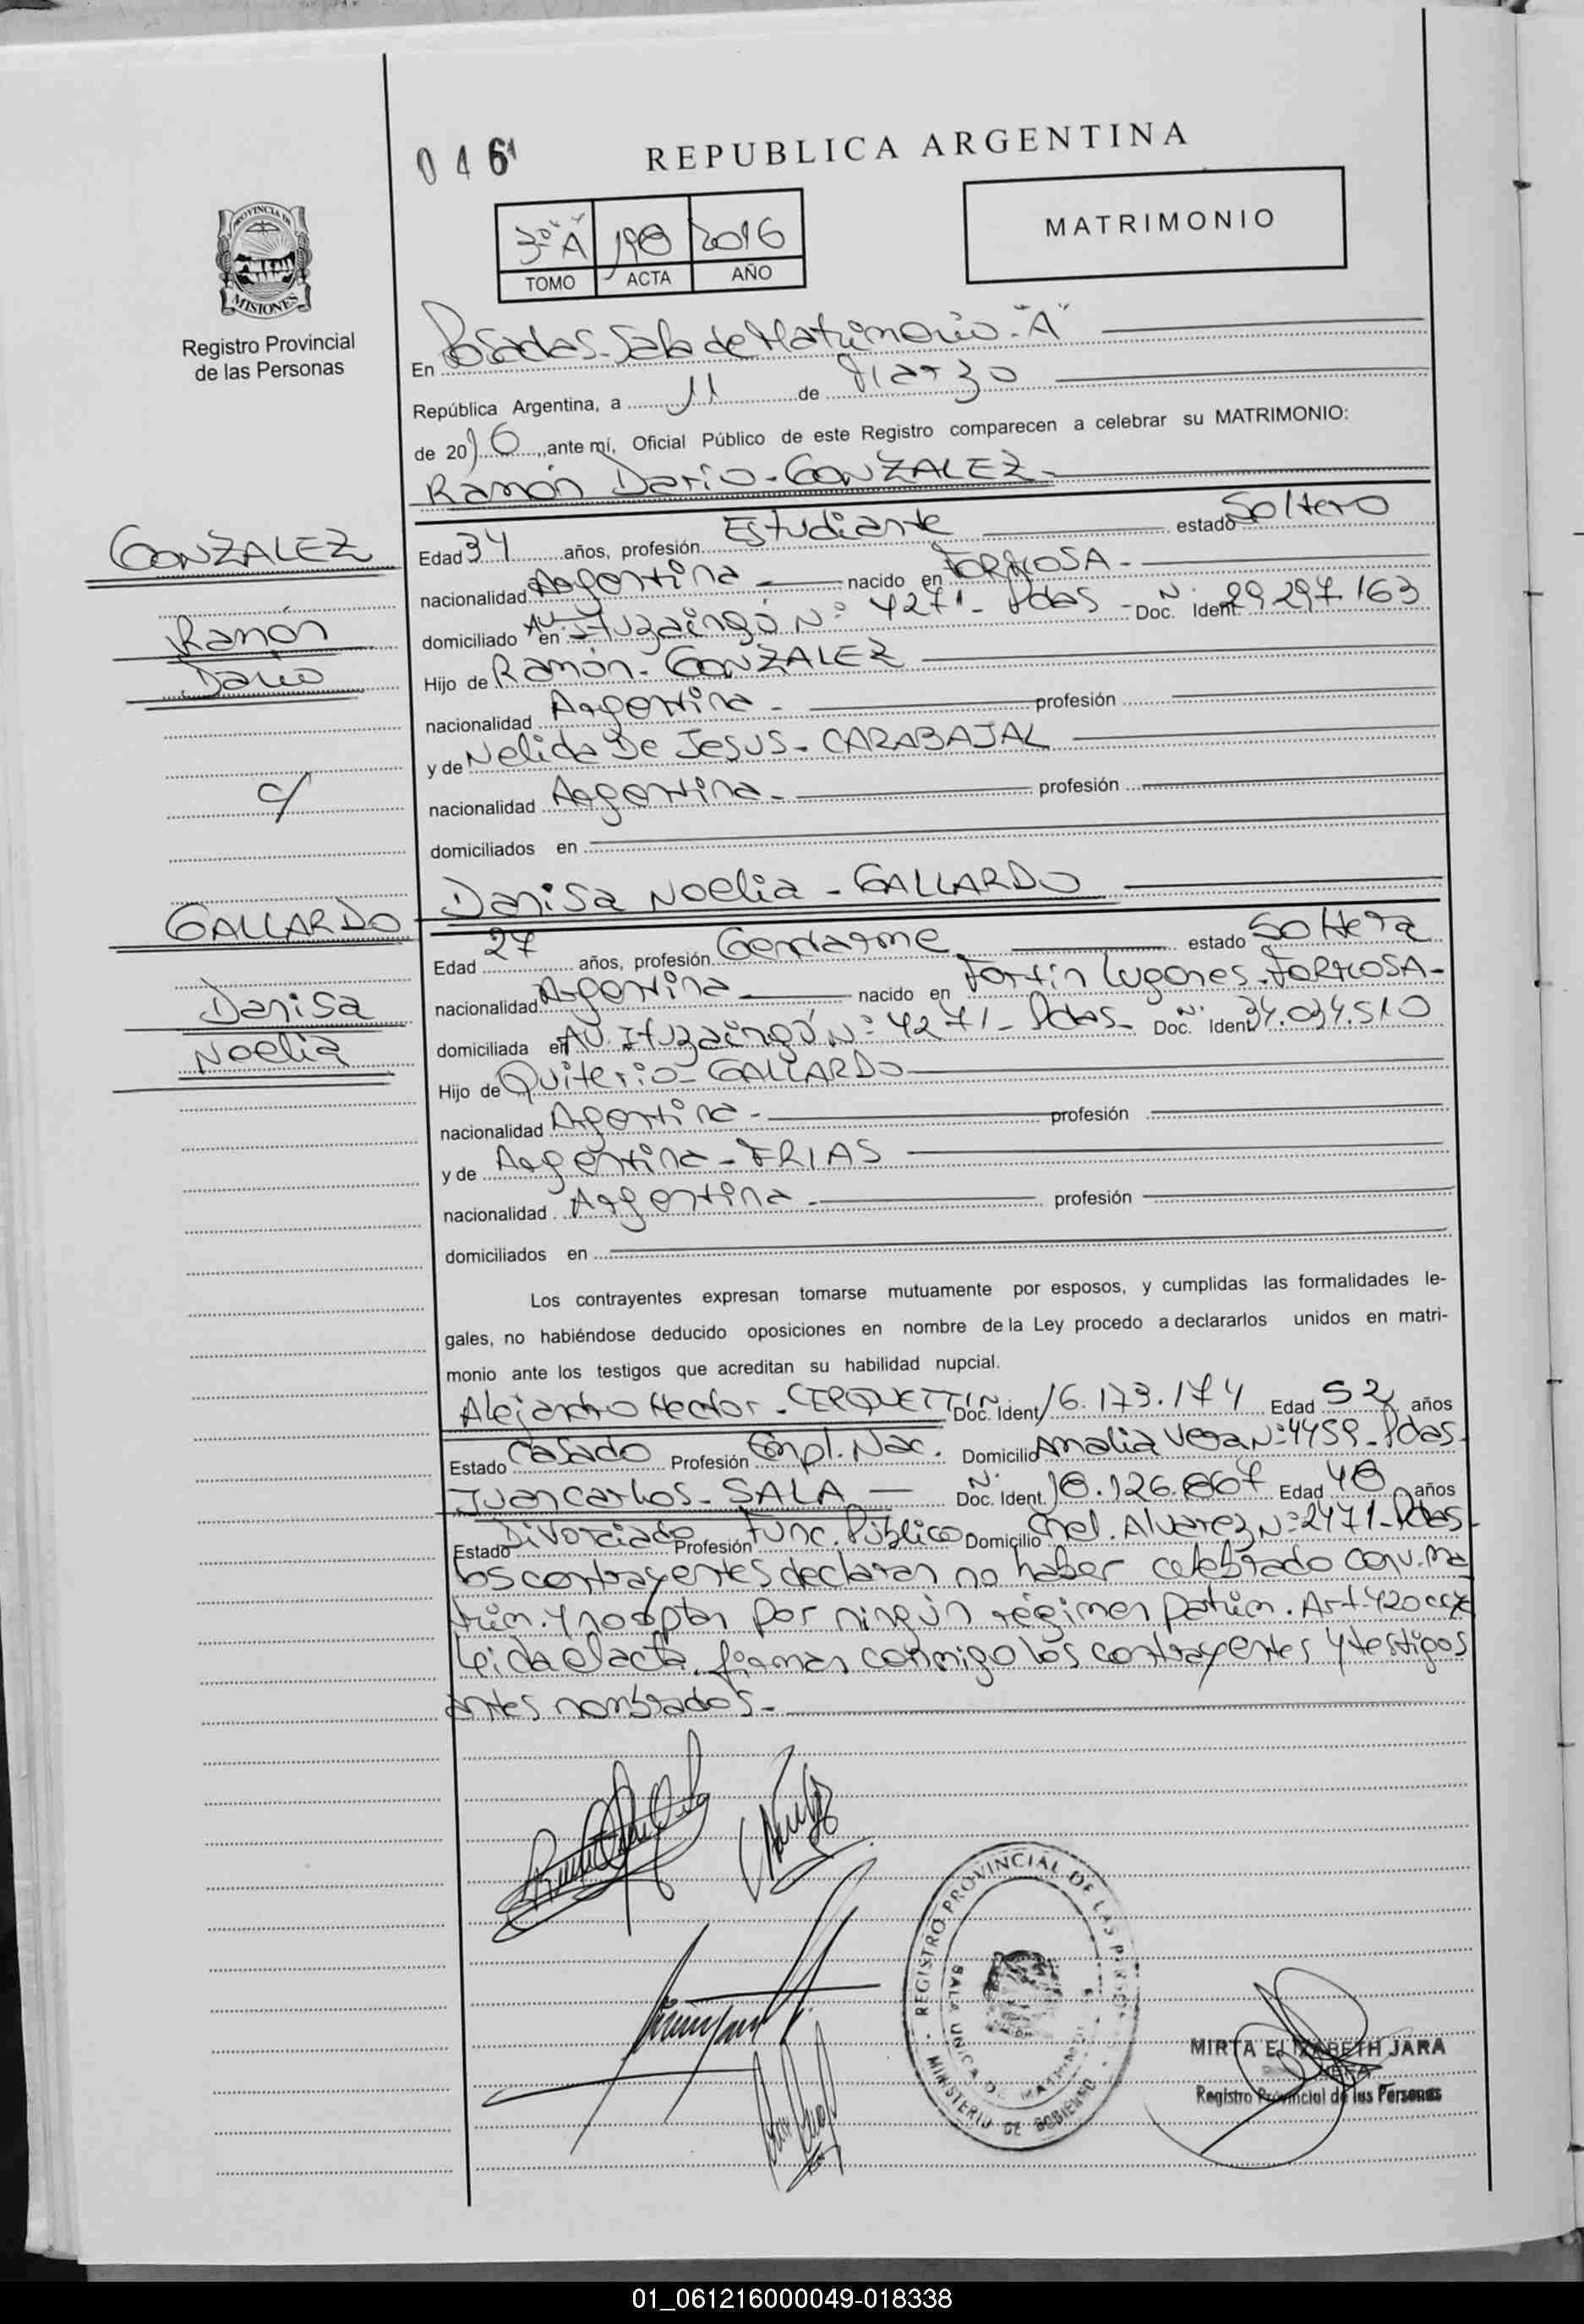 046
REPUBLICA ARGENTINA
MATRIMONIO
3º "A" 198 2016
TOMO ACTA AÑO
PROVINCIA DE
MISIONES
Registro Provincial
de las Personas
En Posadas-Sala de Matrimonio-"A"
República Argentina, a 11 de Marzo
de 2016, ante mí, Oficial Público de este Registro comparecen a celebrar su MATRIMONIO:
Ramón Dario-GONZALEZ-
GONZALEZ
Ramón
Dario
c/
Edad 34 años, profesión Estudiante estado Soltero
nacionalidad Argentina nacido en FORMOSA-
domiciliado en Av. Ituzaingó Nº 4271-Pdas- Doc. Ident. Nº 29.297.163
Hijo de Ramón-GONZALEZ
nacionalidad Argentina- profesión
y de Nelida De Jesus-CARABAJAL
nacionalidad Argentina- profesión
domiciliados en
Danisa Noelia-GALLARDO
GALLARDO
Danisa
Noelia
Edad 27 años, profesión Gendarme estado Soltera
nacionalidad Argentina nacido en Fortín Lugones-FORMOSA-
domiciliada en AV. Ituzaingó Nº 4271-Pdas- Doc. Ident. Nº 34.034.510
Hijo de Quiterio-GALLARDO
nacionalidad Argentina- profesión
y de Argentina-FRIAS
nacionalidad Argentina- profesión
domiciliados en
Los contrayentes expresan tomarse mutuamente por esposos, y cumplidas las formalidades le-
gales, no habiéndose deducido oposiciones en nombre de la Ley procedo a declararlos unidos en matri-
monio ante los testigos que acreditan su habilidad nupcial.
Alejandro Hector-CERQUETTI Nº Doc. Ident. 16.173.174 Edad 52 años
Estado Casado Profesión Empl. Nac. Domicilio Amalia Vera Nº 4459-Pdas-
Juan Carlos-SALA Nº Doc. Ident. 18.126.867 Edad 48 años
Estado Divorciado Profesión Func. Público Domicilio Cnel. Alvarez Nº 2471-Pdas-
los contrayentes declaran no haber celebrado conv. ma
trim. y no optan por ningún régimen patrim. Art. 420 ccy
Leida el acta, firman conmigo los contrayentes y testigos
antes nombrados-
REGISTRO PROVINCIAL DE LAS PERSO
SALA UNICA DE MATRIMO
MINISTERIO DE GOBIERNO
MIRTA ELIZABETH JARA
JEFA
Registro Provincial de las Personas
01_061216000049-018338